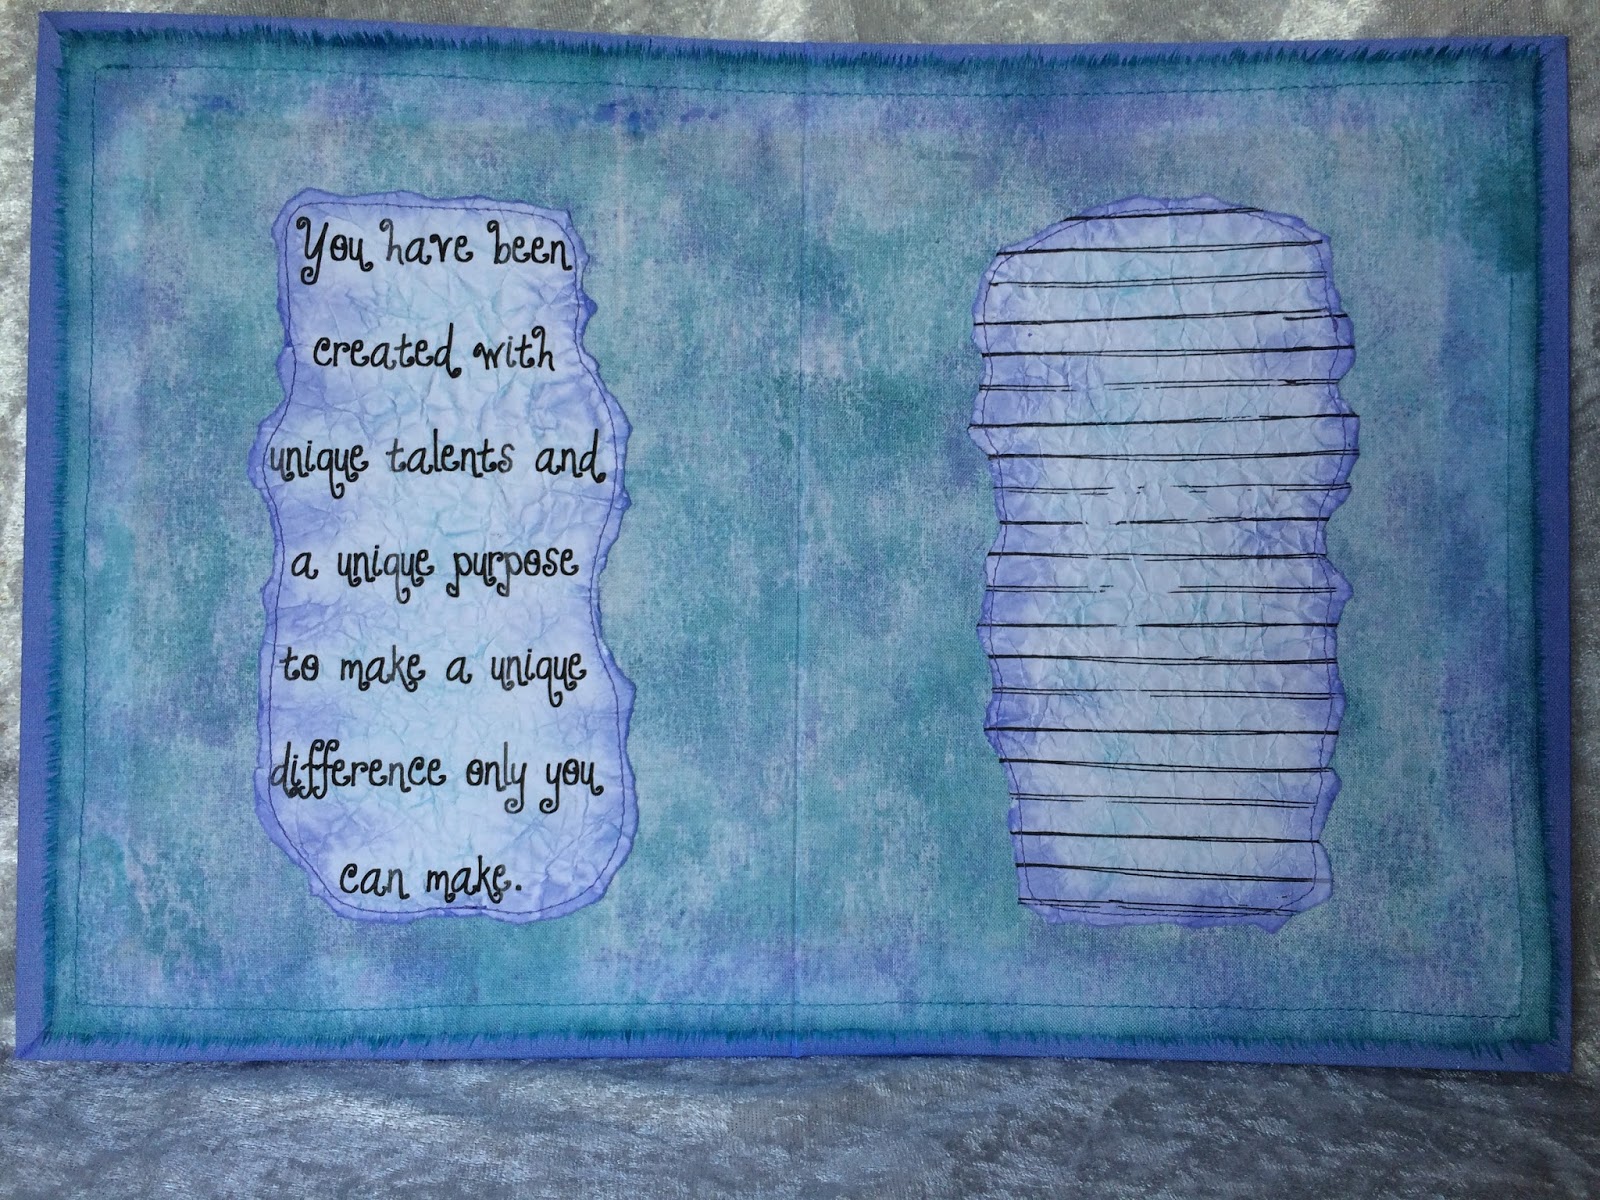 You have been
created with
unique talents and
a unique purpose
to make a unique
difference only you
can make.